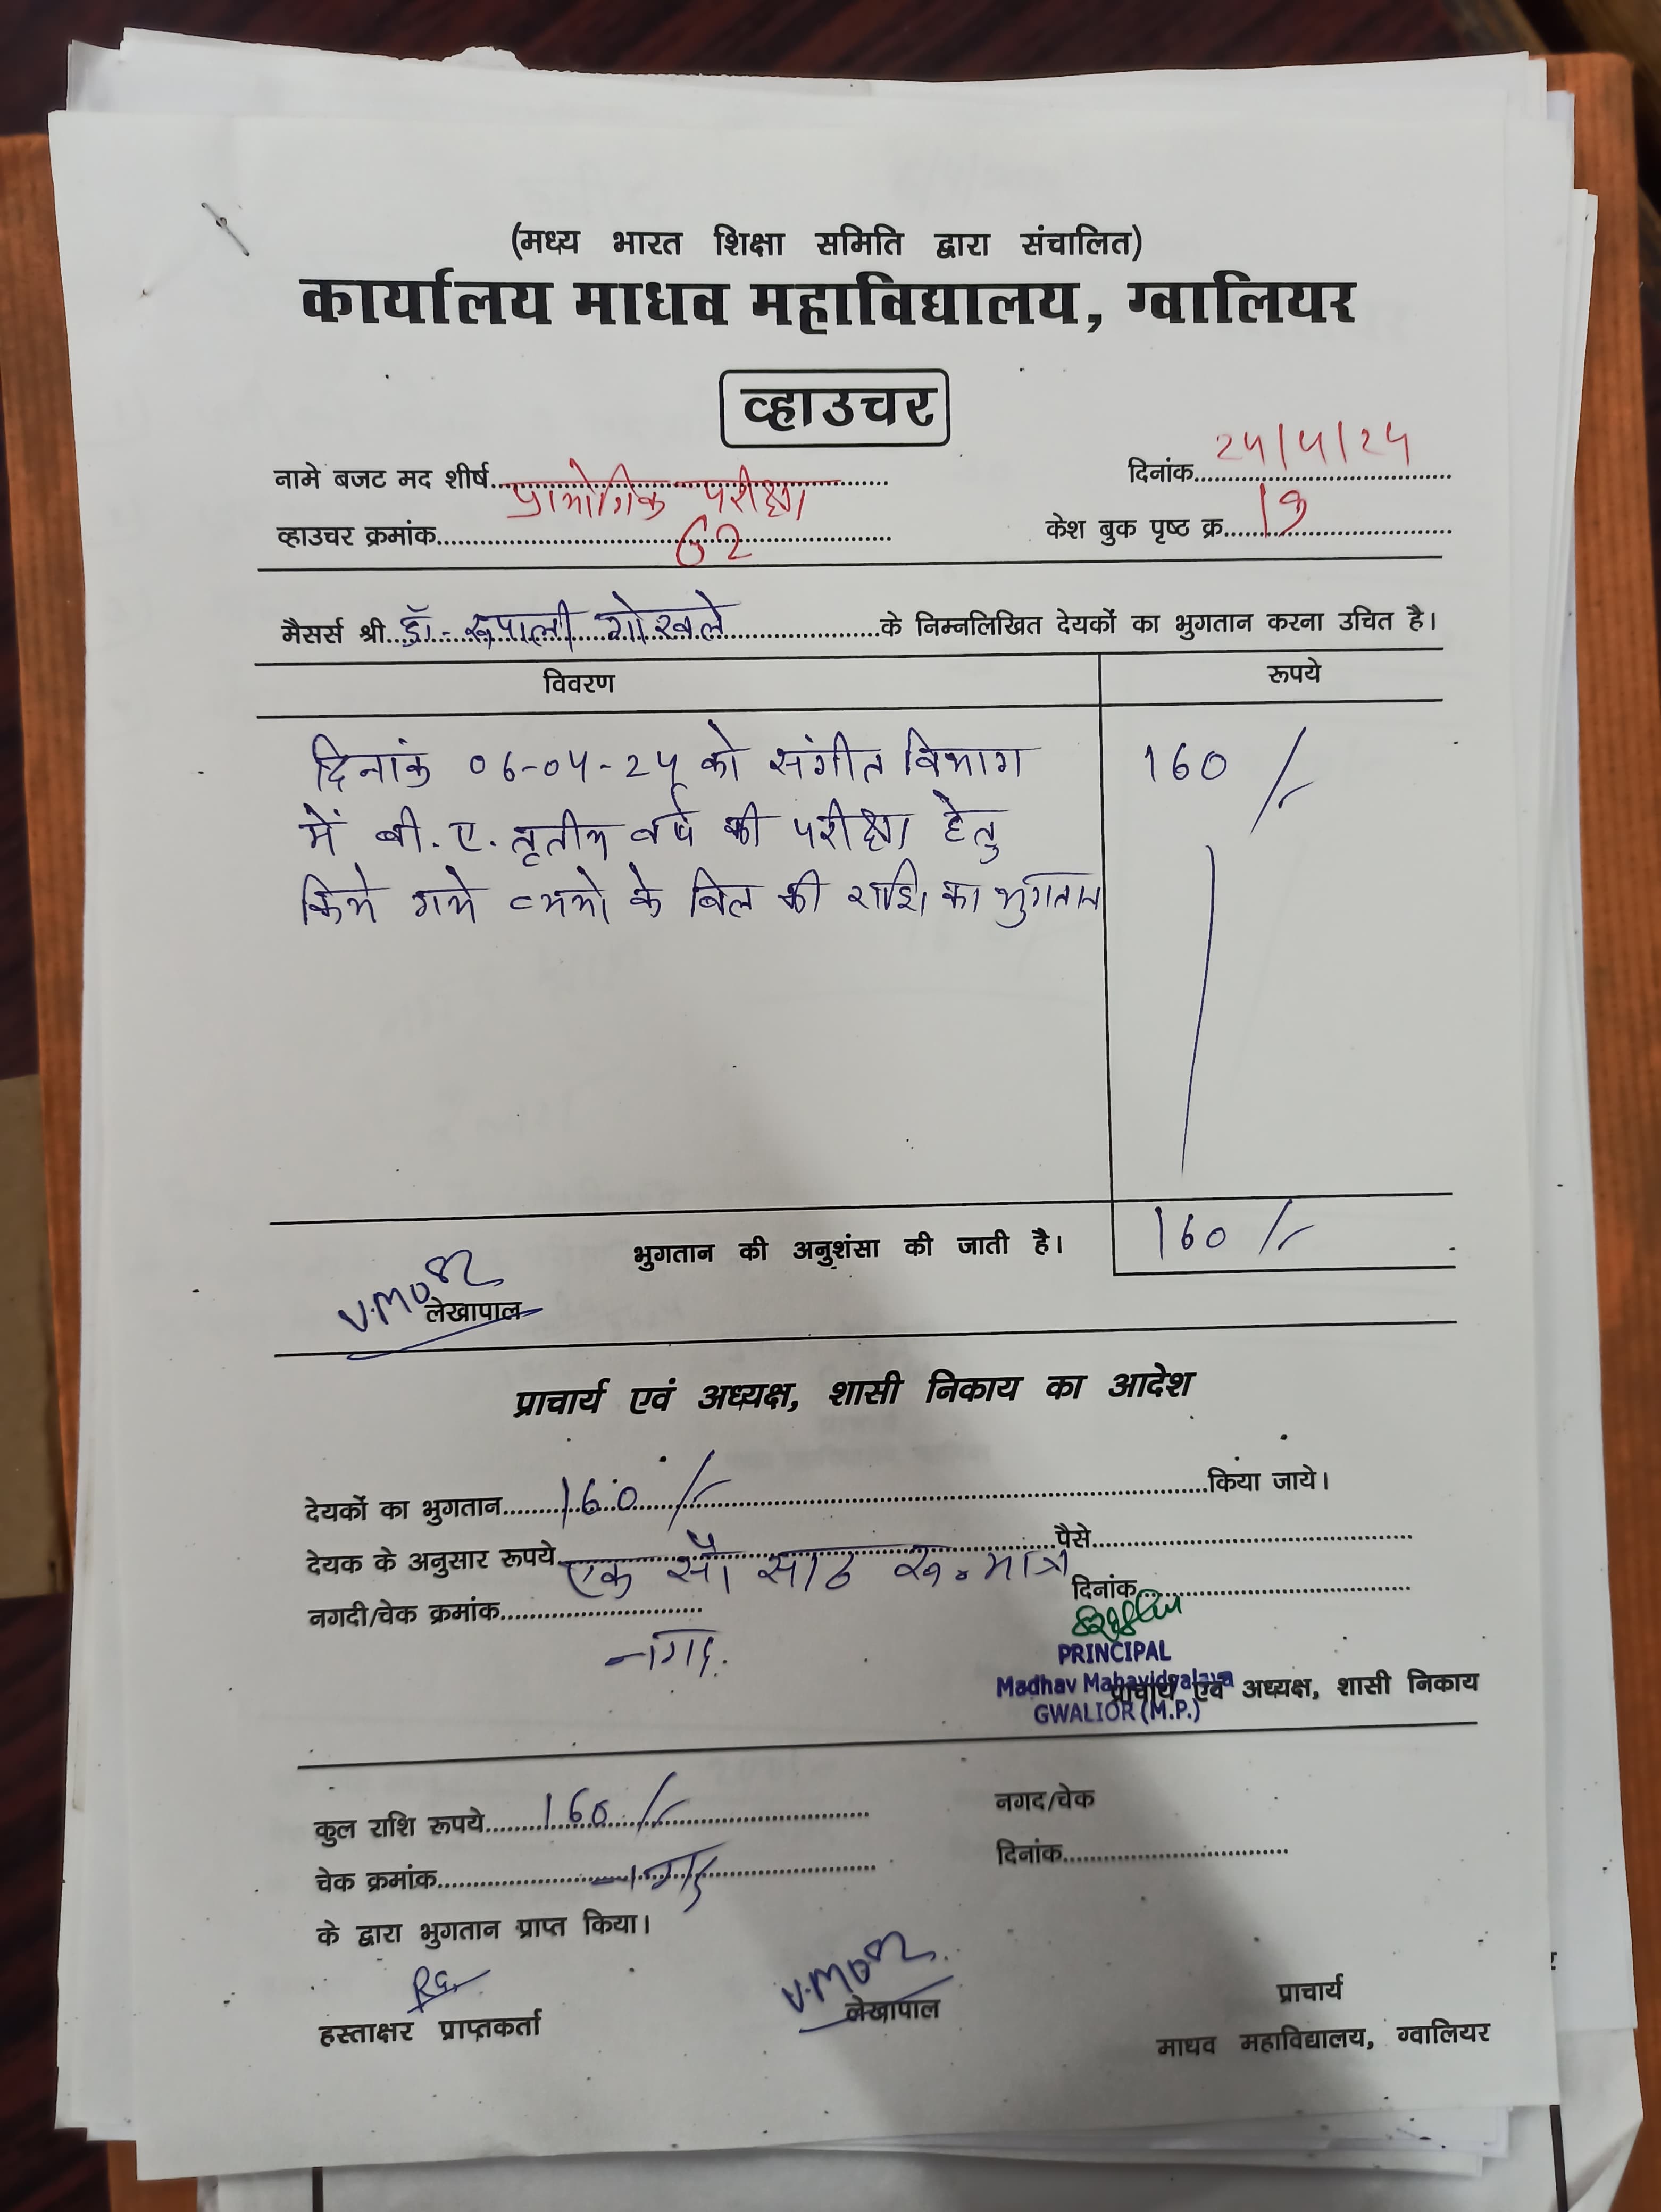 (मध्य भारत शिक्षा समिति द्वारा संचालित)
कार्यालय माधव महाविद्यालय, ग्वालियर
व्हाउचर
नामे बजट मद शीर्ष प्रायोगिक परीक्षा दिनांक 24/4/24
व्हाउचर क्रमांक 62 केश बुक पृष्ठ क्र. 19
मैसर्स श्री डॉ. रूपाली गोखले के निम्नलिखित देयकों का भुगतान करना उचित है।
विवरण रूपये
दिनांक 06-04-24 को संगीत विभाग 160/-
में बी. ए. तृतीय वर्ष की परीक्षा हेतु
किये गये व्ययो के बिल की राशि का भुगतान
भुगतान की अनुशंसा की जाती है। 160/-
लेखापाल
प्राचार्य एवं अध्यक्ष, शासी निकाय का आदेश
देयकों का भुगतान 160/- किया जाये।
देयक के अनुसार रूपये एक सौ साठ रू. मात्र पैसे
नगदी/चेक क्रमांक दिनांक
नगद
PRINCIPAL
Madhav Mahavidyalaya
GWALIOR (M.P.)
प्राचार्य एवं अध्यक्ष, शासी निकाय
कुल राशि रूपये 160/- नगद/चेक
चेक क्रमांक नगद दिनांक
के द्वारा भुगतान प्राप्त किया।
हस्ताक्षर प्राप्तकर्ता लेखापाल प्राचार्य
माधव महाविद्यालय, ग्वालियर